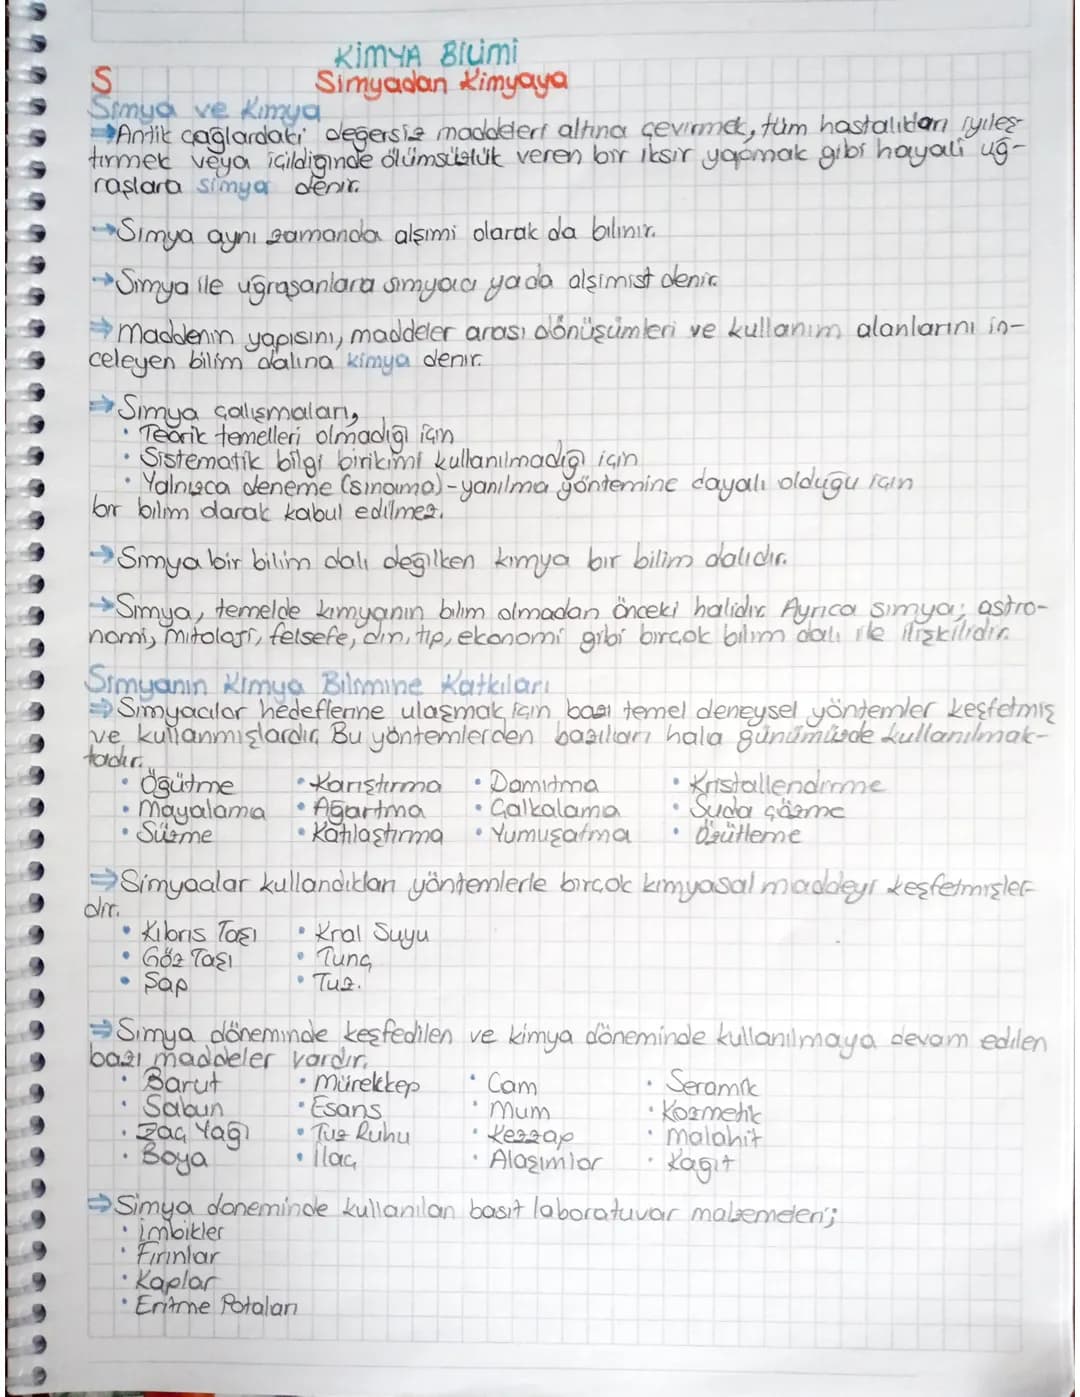 KİMYA BİLİMİ
S
Simyadan Kimyaya
Simya ve Kimya
⇒Antik çağlardaki değersiz maddeleri altına çevirmek, tüm hastalıkları iyileş-
tirmek veya içildiğinde ölümsüzlük veren bir iksir yapmak gibi hayali uğ-
raşlara simya denir.
→Simya aynı zamanda alşimi olarak da bilinir.
→Simya ile uğraşanlara simyacı yada alşimist denir.
⇒Maddenin yapısını, maddeler arası dönüşümleri ve kullanım alanlarını in-
celeyen bilim dalına kimya denir.
⇒Simya çalışmaları,
• Teorik temelleri olmadığı için
• Sistematik bilgi birikimi kullanılmadığı için
• Yalnızca deneme (sınama)-yanılma yöntemine dayalı olduğu için
bir bilim olarak kabul edilmez.
→Simya bir bilim dalı değilken kimya bir bilim dalıdır.
→Simya, temelde kimyanın bilim olmadan önceki halidir. Ayrıca simya; astro-
nomi, mitoloji, felsefe, din, tıp, ekonomi gibi birçok bilim dalı ile ilişkilidir.
Simyanın Kimya Bilimine Katkıları
⇒Simyacılar hedeflerine ulaşmak için bazı temel deneysel yöntemler keşfetmiş
ve kullanmışlardır. Bu yöntemlerden bazıları hala günümüzde kullanılmak-
tadır.
• Öğütme • Karıştırma • Damıtma • Kristallendirme
• Mayalama • Ağartma • Çalkalama • Suda çözme
• Süzme • Katılaştırma • Yumuşatma • Özütleme
⇒Simyacılar kullandıkları yöntemlerle birçok kimyasal maddeyi keşfetmişler-
dir.
• Kıbrıs Taşı • Kral Suyu
• Göz Taşı • Tunç
• Şap • Tuz.
⇒Simya döneminde keşfedilen ve kimya döneminde kullanılmaya devam edilen
bazı maddeler vardır.
• Barut • Mürekkep • Cam • Seramik
• Sabun • Esans • Mum • Kozmetik
• Zaç Yağı • Tuz Ruhu • Kezzap • Malahit
• Boya • İlaç • Alaşımlar • Kağıt
⇒Simya döneminde kullanılan basit laboratuvar malzemeleri;
• İmbikler
• Fırınlar
• Kaplar
• Eritme Potaları